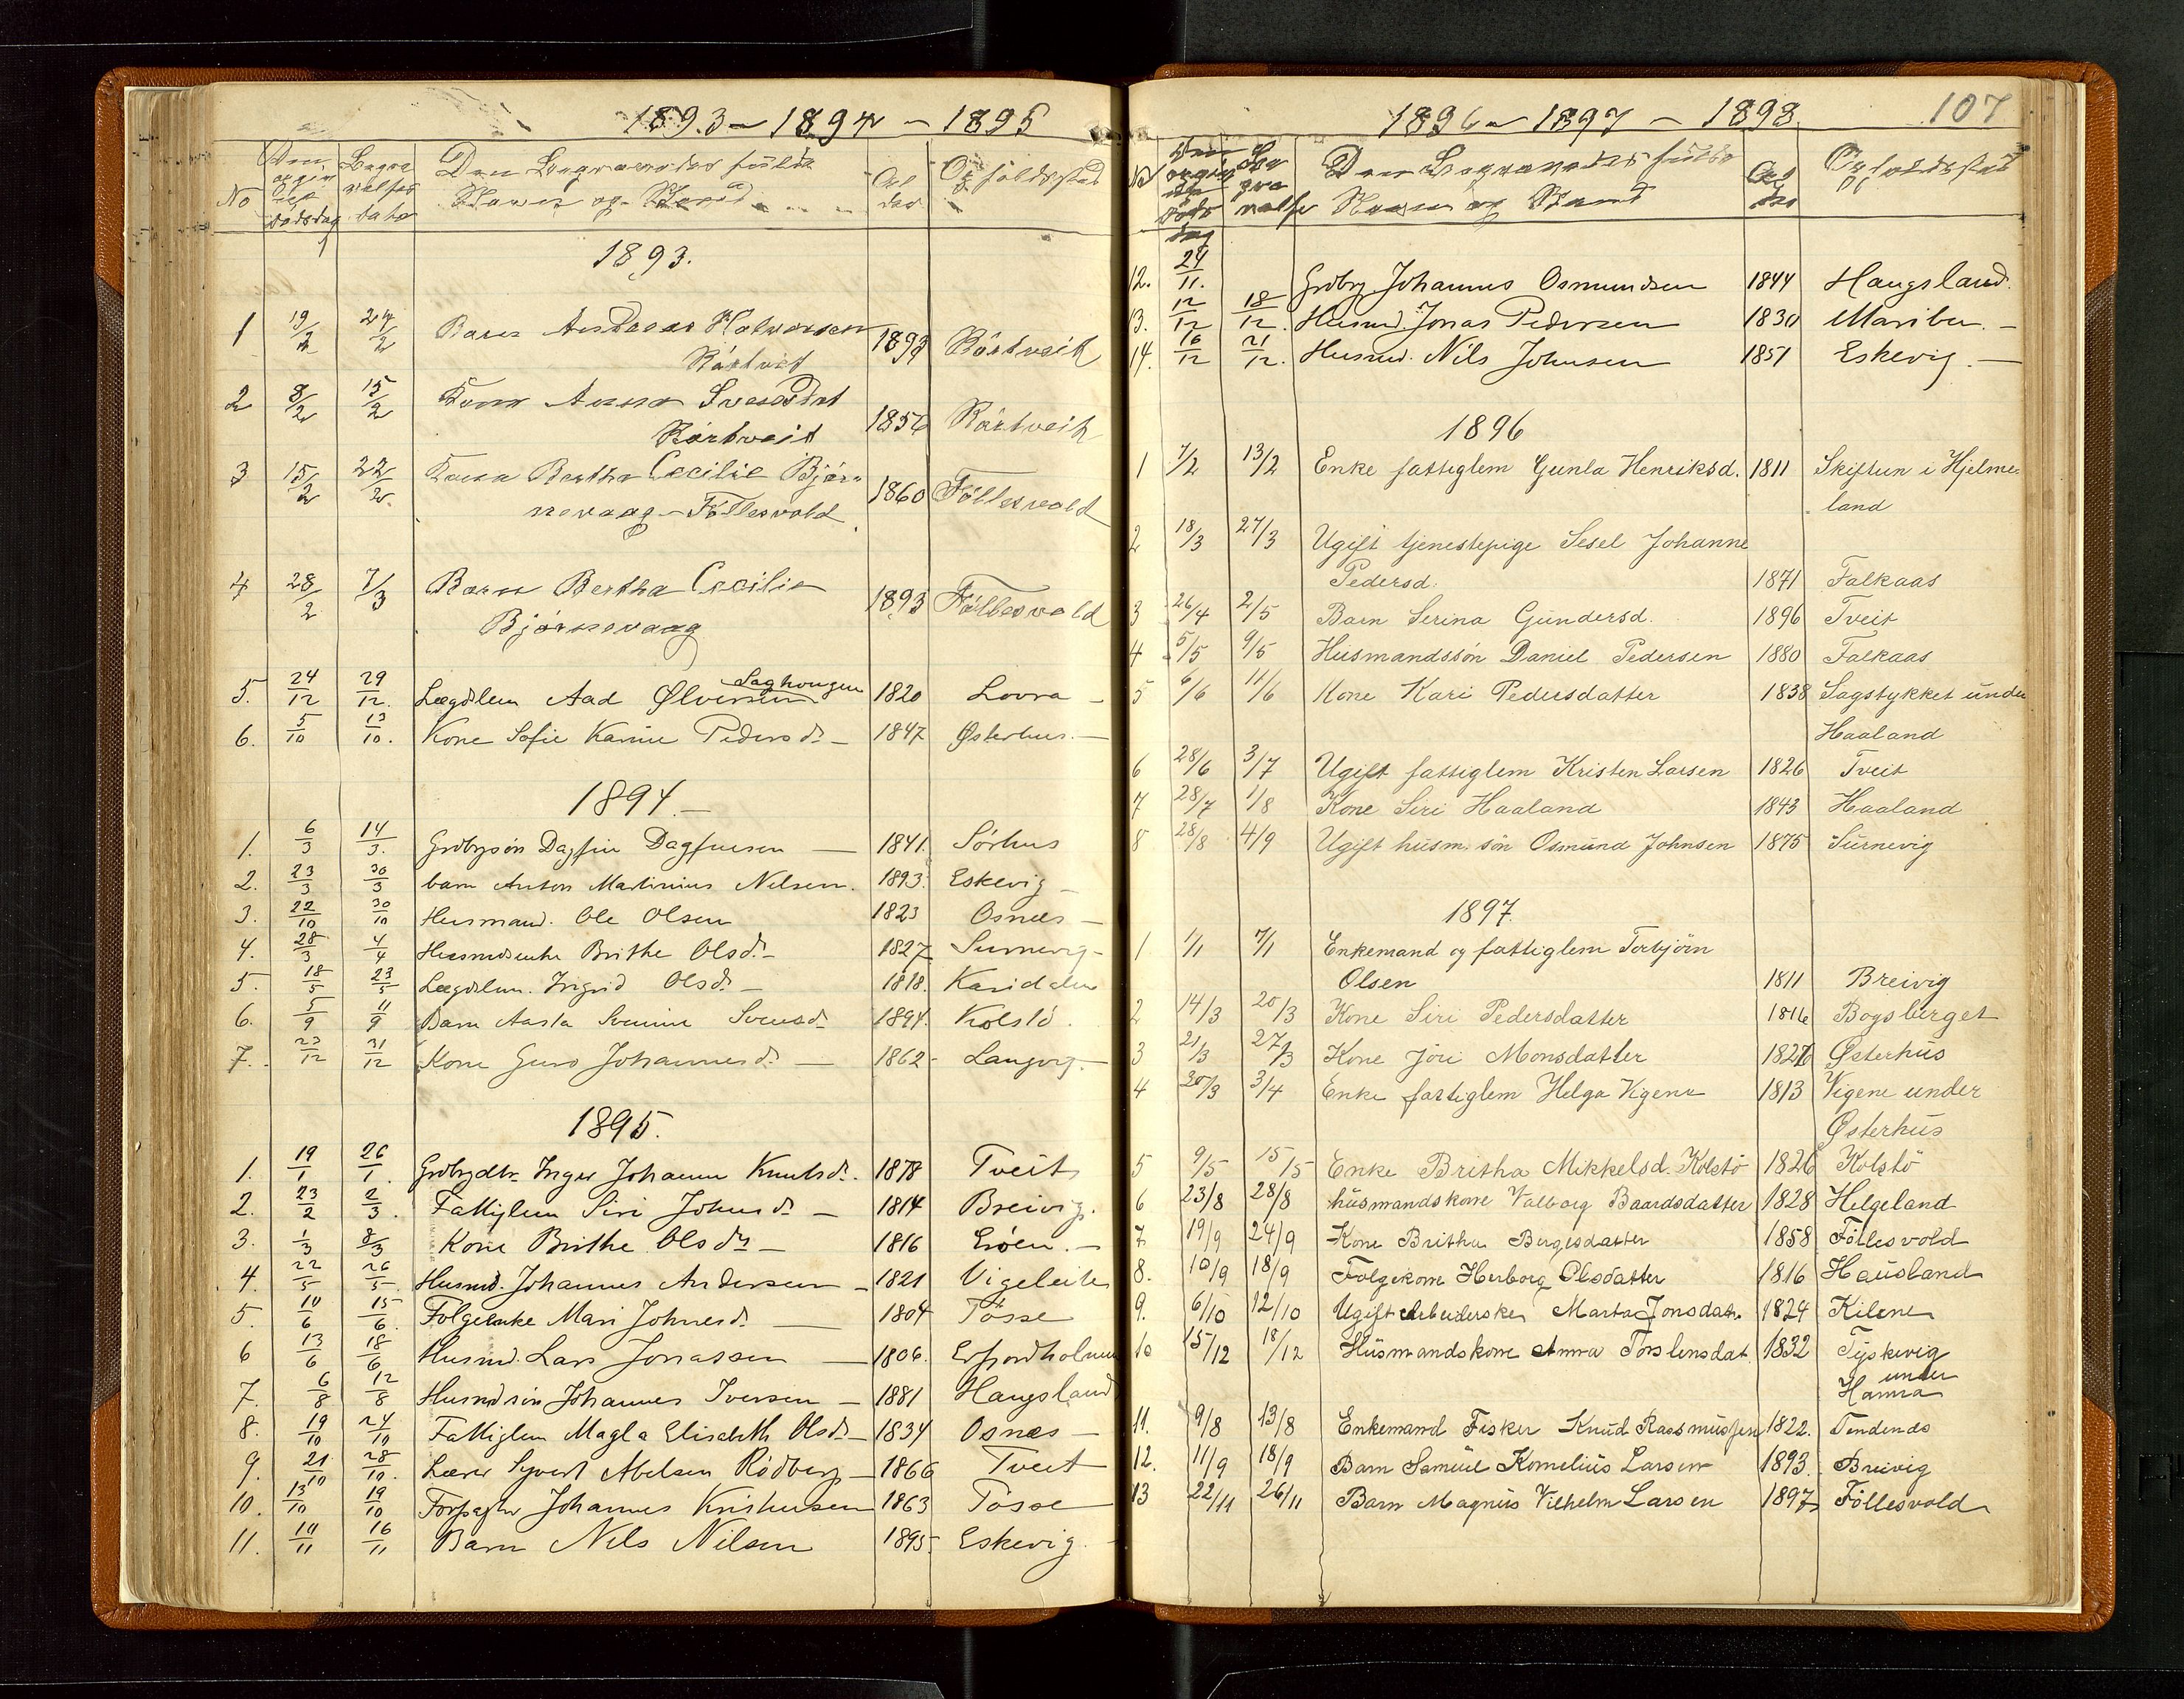 1893 - 1894 - 1895
No
Den Begravedes fulde
Navn og Stand
Opholdssted
1893.
1 19/2 24/2 Barn Halvorsen
1893
2 8/2 15/2 Kone Anna
1856
3 15/2 22/2 Kona Bertha Cecilie Bjør-
nevaag - Föllesvold 1860 Föllesvold
4 28/2 7/3 Barn Bertha Cecilie
Bjørnevaag 1893 Föllesvold
5. 24/12 29/12. Lægdslem Aad Ølversen 1820 Lovra -
6. 5/10 13/10. Kone Sofie Karine Pedersdr - 1847 Østerhus. -
1894. -
1. 6/3 14/3. Grdbrsøn Dagfin Dagfinsen - 1841. Sørhus
2. 23/3 30/3 barn Anton Martinius Nilsen. 1893. Eskevig -
3. 22/10 30/10 Husmand. Ole Olsen 1823 Osnes -
4. 28/3 4/4 Husmdsenke Brithe Olsdr - 1827 Surnevig -
5. 18/5 23/5 Lægdslem. Ingrid Olsdr - 1818. Karidalen
6. 5/9 11/9 Barn Aasta 1894. Kolstö.
7. 23/12 31/12 Kone Guro Johannesdr - 1862 - Langvig. -
1895.
1. 19/1 26/1. Grdbrdtr Inger Johanne Knutsdr. 1878 Tveit
2. 23/2 2/3. Fattiglem Siri Johnsdr - 1814 Breivig.
3. 1/3 8/3 Kone Brithe Olsdr - 1816 -
4. 22/5 26/5. Husmd. Johannes Andersen - 1821 Vigeleite
5. 10/6 15/6. Folgeenke Mari Johnesdr. - 1804 Tösse
6 13/6 18/6 Husmd. Lars Jonassen - 1806. Erfjordholmen
7. 6/8 12/8 Husmdsön Johannes Iversen - 1881 Haugsland
8. 19/10 24/10 Fattiglem Magla Elisabeth Olsdr - 1834 Osnes -
9. 21/10 28/10. Lærer Syvert Abelsen Rödberg - 1866 Tveit
10. 13/10 19/10 Forpagter Johannes Kristensen 1863 Tösse
11. 10/11 16/11 Barn Nils Nilsen 1895. Eskevig.
1896 - 1897 - 1898 107
No
Den Begravedes fulde
Navn og Stand
Opholdssted
12. 24/11. Grdbr. Johannes Osmundsen 1844 Haugsland.
13. 12/12 18/12. Husmd. Jonas Pedersen 1830 Maribu. -
14. 16/12 21/12. Husmd. Nils Johnsen 1851 Eskevig. -
1896
1 7/2 13/2 Enke fattiglem Gunla Henriksd. 1811 Skiftun i Hjelme-
land
2 18/3 27/3 Ugift tjenestepige Sesel Johanne
Pedersd. 1871 Falkaas
3 26/4 2/5 Barn Serina Gundersd. 1896 Tveit
4 5/5 9/5 Husmandssön Daniel Pedersen 1880 Falkaas
5 6/6 11/6 Kone Kari Pedersdatter 1838 Sagstykket under
Haaland
6 28/6 3/7 Ugift fattiglem Kristen Larsen 1826 Tveit
7 28/7 1/8 Kone Siri Haaland 1843 Haaland
8 28/8 4/9 Ugift husm. sön Osmund Johnsen 1875 Surnevig
1897.
1 1/1 7/1 Enkemand og fattiglem Torbjörn
Olsen 1811 Breivig
2 14/3 20/3 Kone Siri Pedersdatter 1816 Bogsberget
3 21/3 27/3 Kone Jöri Monsdatter Østerhus
4 30/3 3/4 Enke fattiglem Helga Vigene 1813 Vigene under
Østerhus
5 9/5 15/5 Enke Britha Mikkelsd. Kolstö 1826 Kolstö
6 23/8 28/8 husmandskone Valborg Baardsdatter 1828 Helgeland
7 19/9 24/9 Kone Britha Bergesdatter 1858 Föllesvold
8. 10/9 18/9 Folgekone Herborg Olsdatter 1816 Hausland
9. 6/10 12/10 Ugift Arbeiderske Marta Jonsdatr. 1824 Kilene
10 15/12 18/12 Husmandskone Anna Torstensdat. 1832 Tyskevig
under
Hanna
11. 9/8 13/8 Enkemand Fisker Knud Rasmussen 1822. Tendenes
12. 11/9 18/9 Barn Samuel Kornelius Larsen 1893. Breivig
13 22/11 26/11 Barn Magnus Vilhelm Larsen 1897 Föllesvold